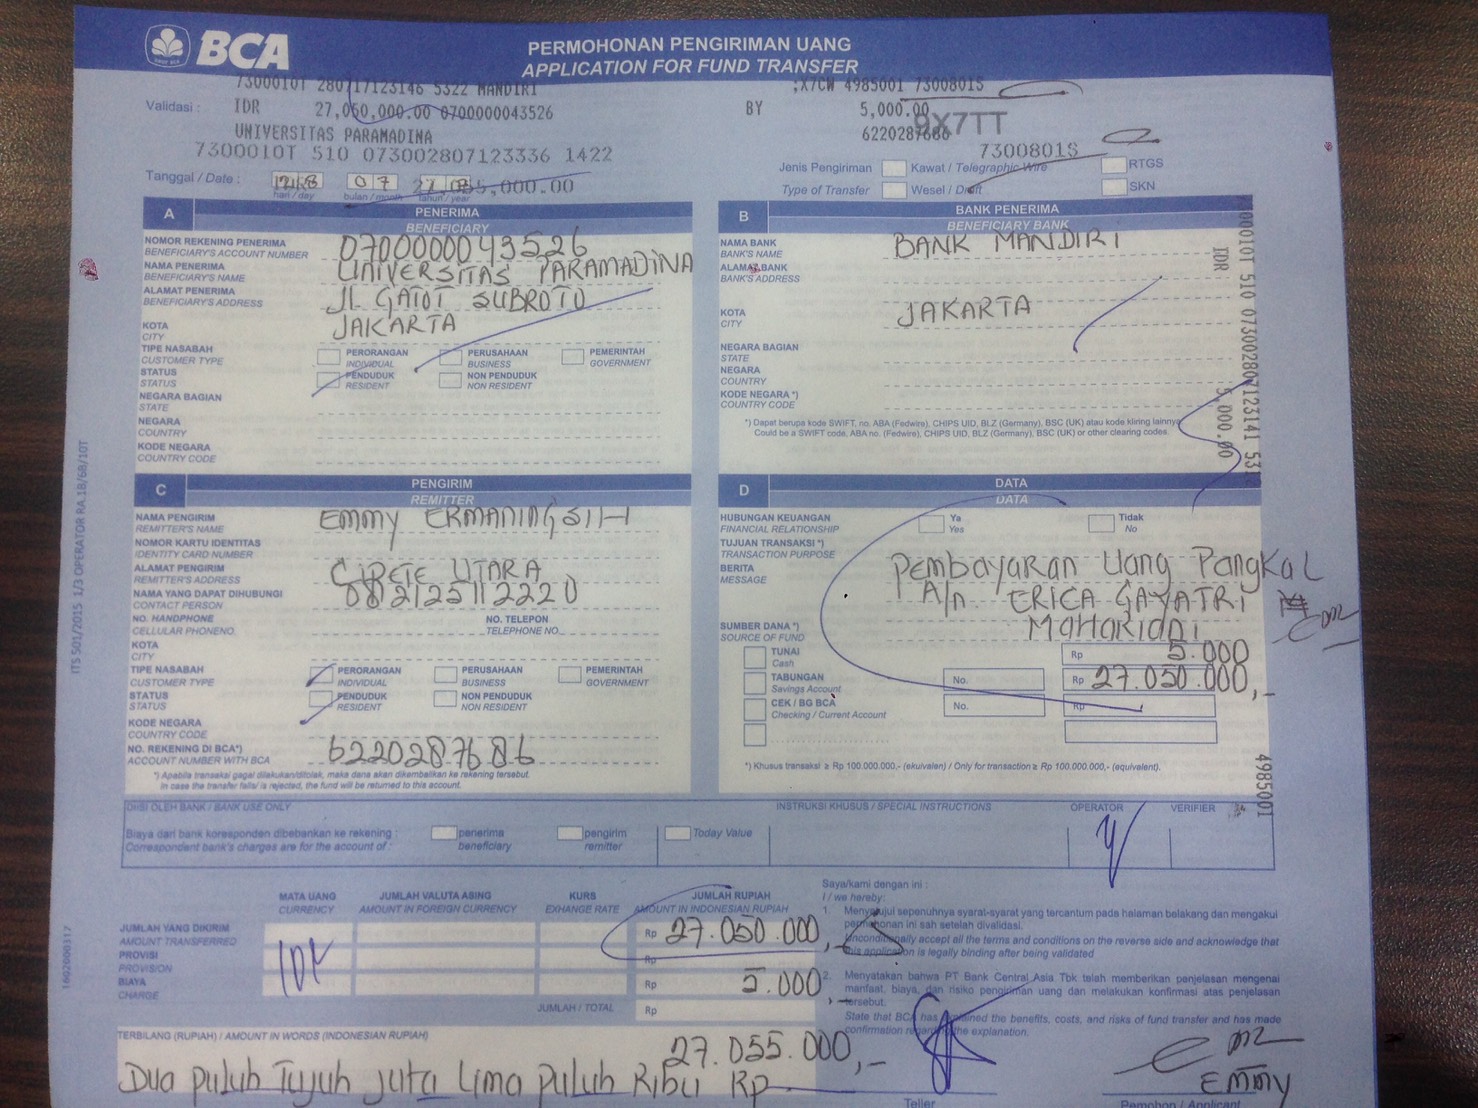 BCA
PERMOHONAN PENGIRIMAN UANG
APPLICATION FOR FUND TRANSFER
7300010T 280717123146 5322 MANDIRI
;X7CW 4985001 7300801S
Validasi :
IDR 27,050,000.00 0700000043526
BY 5,000.00
UNIVERSITAS PARAMADINA
6220287686
9X7TT
7300010T 510 073002807123336 1422
7300801S
Tanggal / Date :
07
hari / day
bulan / month
tahun / year
Jenis Pengiriman
Type of Transfer
Kawat / Telegraphic Wire
RTGS
Wesel / Draft
SKN
A
PENERIMA
BENEFICIARY
NOMOR REKENING PENERIMA
BENEFICIARY'S ACCOUNT NUMBER
0700000043526
NAMA PENERIMA
BENEFICIARY'S NAME
UNIVERSITAS PARAMADINA
ALAMAT PENERIMA
BENEFICIARY'S ADDRESS
JL GATOT SUBROTO
KOTA
CITY
JAKARTA
TIPE NASABAH
CUSTOMER TYPE
PERORANGAN
INDIVIDUAL
PERUSAHAAN
BUSINESS
PEMERINTAH
GOVERNMENT
STATUS
STATUS
PENDUDUK
RESIDENT
NON PENDUDUK
NON RESIDENT
NEGARA BAGIAN
STATE
NEGARA
COUNTRY
KODE NEGARA
COUNTRY CODE
B
BANK PENERIMA
BENEFICIARY BANK
NAMA BANK
BANK'S NAME
BANK MANDIRI
ALAMAT BANK
BANK'S ADDRESS
KOTA
CITY
JAKARTA
NEGARA BAGIAN
STATE
NEGARA
COUNTRY
KODE NEGARA *)
COUNTRY CODE
*) Dapat berupa kode SWIFT, no. ABA (Fedwire), CHIPS UID, BLZ (Germany), BSC (UK) atau kode kliring lainnya
Could be a SWIFT code, ABA no. (Fedwire), CHIPS UID, BLZ (Germany), BSC (UK) or other clearing codes.
IDR 5,000.00
C
PENGIRIM
REMITTER
NAMA PENGIRIM
REMITTER'S NAME
EMMY ERMANINGSIH
NOMOR KARTU IDENTITAS
IDENTITY CARD NUMBER
ALAMAT PENGIRIM
REMITTER'S ADDRESS
CIPETE UTARA
NAMA YANG DAPAT DIHUBUNGI
CONTACT PERSON
NO. HANDPHONE
CELLULAR PHONE NO.
NO. TELEPON
TELEPHONE NO.
KOTA
CITY
TIPE NASABAH
CUSTOMER TYPE
PERORANGAN
INDIVIDUAL
PERUSAHAAN
BUSINESS
PEMERINTAH
GOVERNMENT
STATUS
STATUS
PENDUDUK
RESIDENT
NON PENDUDUK
NON RESIDENT
KODE NEGARA
COUNTRY CODE
NO. REKENING DI BCA*)
ACCOUNT NUMBER WITH BCA
6220287686
*) Apabila transaksi gagal dilakukan/ditolak, maka dana akan dikembalikan ke rekening tersebut.
In case the transfer fails/is rejected, the fund will be returned to this account.
D
DATA
DATA
HUBUNGAN KEUANGAN
FINANCIAL RELATIONSHIP
Ya
Yes
Tidak
No
TUJUAN TRANSAKSI *)
TRANSACTION PURPOSE
BERITA
MESSAGE
Pembayaran Uang Pangkal
A/n ERICA GAYATRI
MAHARIDNI
SUMBER DANA *)
SOURCE OF FUND
TUNAI
Cash
Rp 5.000
TABUNGAN
Savings Account
No.
Rp 27.050.000,-
CEK / BG BCA
Checking / Current Account
No.
Rp
*) Khusus transaksi ≥ Rp 100.000.000,- (ekuivalen) / Only for transaction ≥ Rp 100.000.000,- (equivalent).
4985001
DIISI OLEH BANK / BANK USE ONLY
INSTRUKSI KHUSUS / SPECIAL INSTRUCTIONS
OPERATOR
VERIFIER
Biaya dari bank koresponden dibebankan ke rekening :
Correspondent bank's charges are for the account of :
penerima
beneficiary
pengirim
remitter
Today Value
MATA UANG
CURRENCY
JUMLAH VALUTA ASING
AMOUNT IN FOREIGN CURRENCY
KURS
EXHANGE RATE
JUMLAH RUPIAH
AMOUNT IN INDONESIAN RUPIAH
JUMLAH YANG DIKIRIM
AMOUNT TRANSFERRED
Rp 27.050.000,-
PROVISI
PROVISION
IDR
Rp
BIAYA
CHARGE
Rp 5.000,-
JUMLAH / TOTAL
Rp
27.055.000,-
TERBILANG (RUPIAH) / AMOUNT IN WORDS (INDONESIAN RUPIAH)
Dua puluh Tujuh Juta Lima puluh Ribu Rp
Saya/kami dengan ini :
I / we hereby:
1. Menyetujui sepenuhnya syarat-syarat yang tercantum pada halaman belakang dan mengakui
permohonan ini sah setelah divalidasi.
Unconditionally accept all the terms and conditions on the reverse side and acknowledge that
this application is legally binding after being validated
2. Menyatakan bahwa PT Bank Central Asia Tbk telah memberikan penjelasan mengenai
manfaat, biaya, dan risiko pengiriman uang dan melakukan konfirmasi atas penjelasan
tersebut.
State that BCA has explained the benefits, costs, and risks of fund transfer and has made
confirmation regarding the explanation.
EMMY
Teller
Pemohon / Applicant